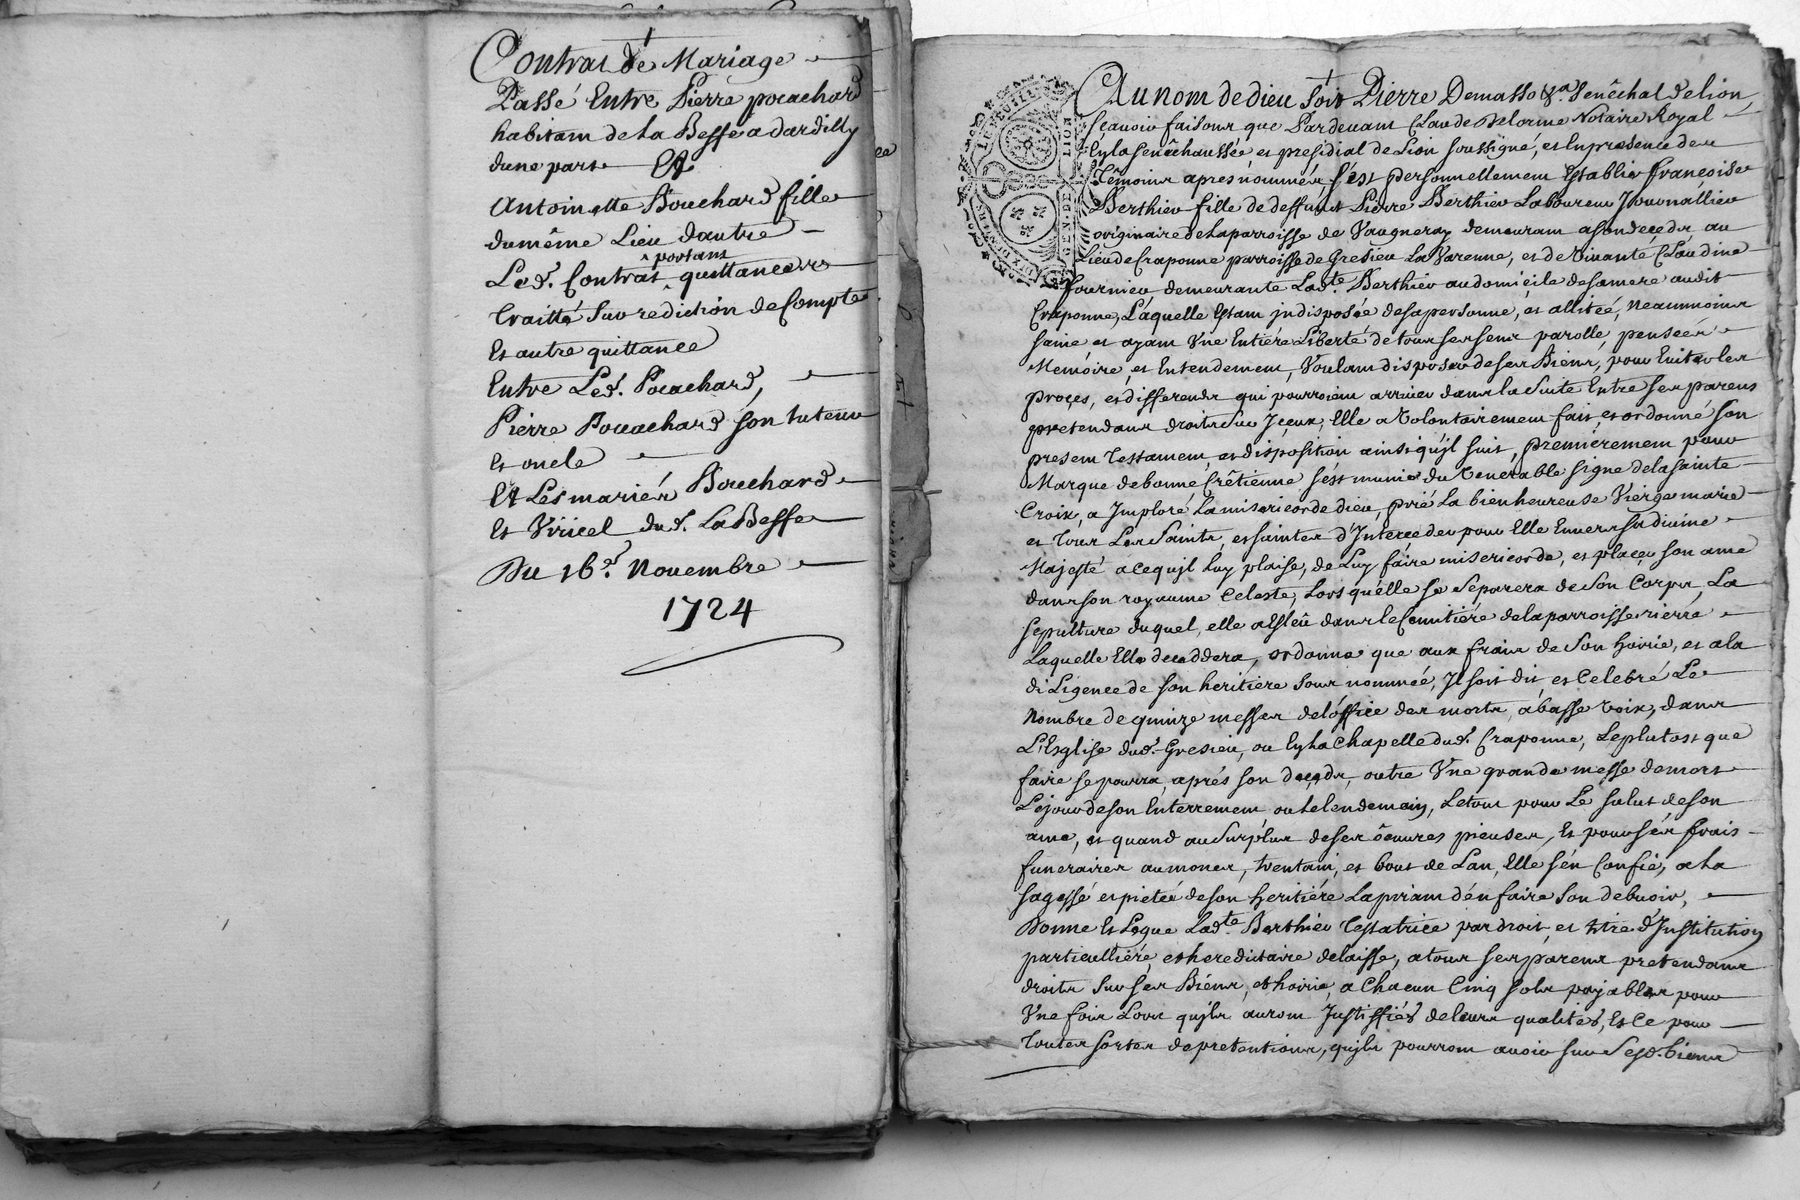 Contrat de Mariage
Passé Entre Pierre pouachard
habitant de La Besse a dardilly
dune part Et
Antoinette Bouchard fille
dumême Lieu dautre
portant
Led. Contrat quittances
traitté sur rediction de Compte
Et autre quittance
Entre Led. Pouachard,
Pierre Pouachard son tuteur
Et oncle
Et Les mariés Bouchard
Et Viricel dud. La Besse
Du 16e. Novembre
1724
LION
Au nom de dieu soit Pierre Demasso &a. Senêchal de lion
sçavoir faisons que Pardevant Claude Delorme Notaire Royal
En la senêchaussée et presidial de Lion soussigné, et En presence des
Têmoins apres nommés, s'est personnellement Establie françoise
Berthier fille de deffunt Pierre Berthier Laboureur Journallier
originaire de la parroisse de Vaugneray demeurant a son decedz au
Lieu de Craponne parroisse de Gresieu La Varenne, et de Vivante Claudine
fournieu demeurante Ladte. Berthier au domicile de sa mere audit
Craponne, Laquelle Estant indisposée de sa personne, et allitée, neanmoins
saine et ayant Une Entiére Liberté de tous ses sens parolle, pensées
Memoire, et Entendement, Voulant disposer de ses Biens, pour Eviter les
proçes, et differends qui pourroient arriver dans la suite Entre ses parens
pretendans droits sur Iceux, Elle a Volontairement fait, et ordonné son
present Testament, et disposition ainsi qu'il suit, premiérement pour
Marque de bonne Crêtienne s'est munie du Venerable signe de la sainte
Croix, a Imploré La misericorde dieu, prié La bienheureuse Vierge marie
et tous Les Saints, et saintes d'Interceder pour Elle Envers sa divine
Majesté a ce qu'il Luy plaise, de Luy faire misericorde, et placer son ame
dans son royaume Celeste, Lors qu'elle se Separera de Son Corps, La
sepulture duquel, elle a Esleüe dans le Cemitiére de la parroisse riére
Laquelle Elle deceddera, ordonne que aux frais de Son hoirie, et a la
diLigence de son heritiére sous nommée, Il soit dit, et Celebré Le
Nombre de quinze messes de l'office des morts, a basse voix, dans
L'Esglise dud. Gresieu, ou En la Chapelle dud. Craponne, Le plutost que
faire se pourra, aprés son decedz, outre Une grande messe de mort
Le jour de son Enterrement, ou Le lendemain, Le tout pour Le salut de son
ame, et quand au Surplus de ses ôeuvres pieuses, Et pour ses frais
funeraires aumones, trentain, et bout de Lan, Elle s'en Confie, a La
sagesse et pieté de son heritiére La priant d'en faire Son debvoir,
Donne Et Legue Ladte. Berthier Testatrice par droit, et titre d'Institution
particulliére, et hereditaire delaisse, a tous ses parens pretendans
droits sur ses Biens, et hoirie, a Chacun Cinq sols payables pour
Une fois Lors qu'ils auront Justiffiés de leurs qualités, Et Ce pour
Toutes sortes de pretentions, qu'ils pourront avoir sur Sesd. biens